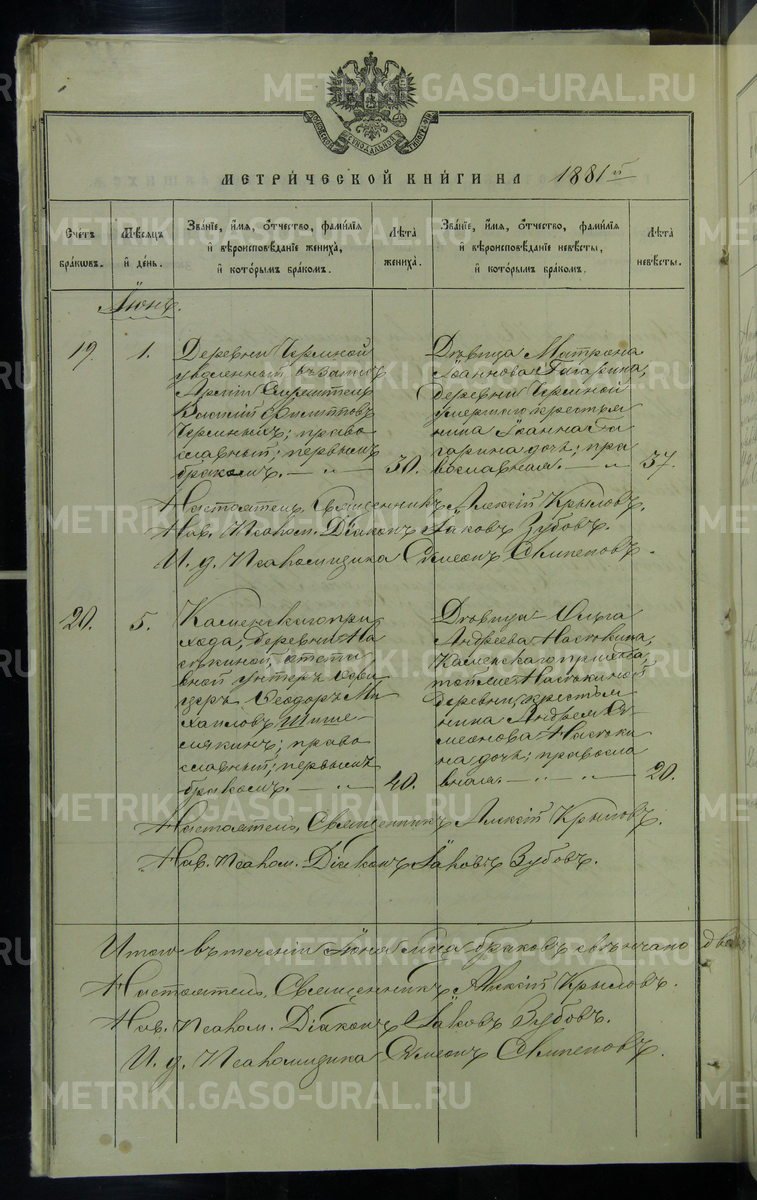 МЕТРИ́ЧЕСКОЙ КНИ́ГИ НА 1881 й
Счетъ бра́ковъ.
Мѣсяцъ и҆ день.
Зва́нїе, и҆́мя, ѻ҆́тчество, фами́лїя и҆ вѣроисповѣ́данїе жениха̀, и҆ кото́рымъ бра́комъ.
Лѣ́та жениха̀.
Зва́нїе, и҆́мя, ѻ҆́тчество, фами́лїя и҆ вѣроисповѣ́данїе невѣ́сты, и҆ кото́рымъ бра́комъ.
Лѣ́та невѣ́сты.
Іюнь.
19.
1.
Деревни Черемной
уволенный въ запасъ
Арміи
Василій Филипповъ
Черемныхъ; право
славный; первымъ
бракомъ. — „ —
30.
Дѣвица Матрона
Іоаннова Гагарина,
деревни Черемной
умершаго крестья
нина Іоанна Га
гарина дочь; пра
вославная. — „
37.
Настоятель, Священникъ Алексій Крыловъ.
Нав. Псалом. Діаконъ Іаковъ Зубовъ.
И. д. Псаломщика Симеонъ
20.
5.
Каменскаго при
хода, деревни На
сѣкиной, отста
вной унтеръ офи
церъ Ѳеодоръ Ми
хаиловъ Шише
лякинъ; право
славный; первымъ
бракомъ. — „ —
40.
Дѣвица Ольга
Андреева Насѣкина,
Каменскаго прихода,
той же Насѣкиной
деревни, крестья
нина Андрея Си
меонова Насѣки
на дочь; правосла
вная. — „ — „ —
20.
Настоятель, Священникъ Алексій Крыловъ.
Нав. Псалом. Діаконъ Іаковъ Зубовъ.
Итого въ теченіи Іюня м-ца браковъ свѣнчано два
Настоятель, Священникъ Алексій Крыловъ.
Нав. Псалом. Діаконъ Іаковъ Зубовъ.
И. д. Псаломщика Симеонъ
METRIKI.GASO-URAL.RU